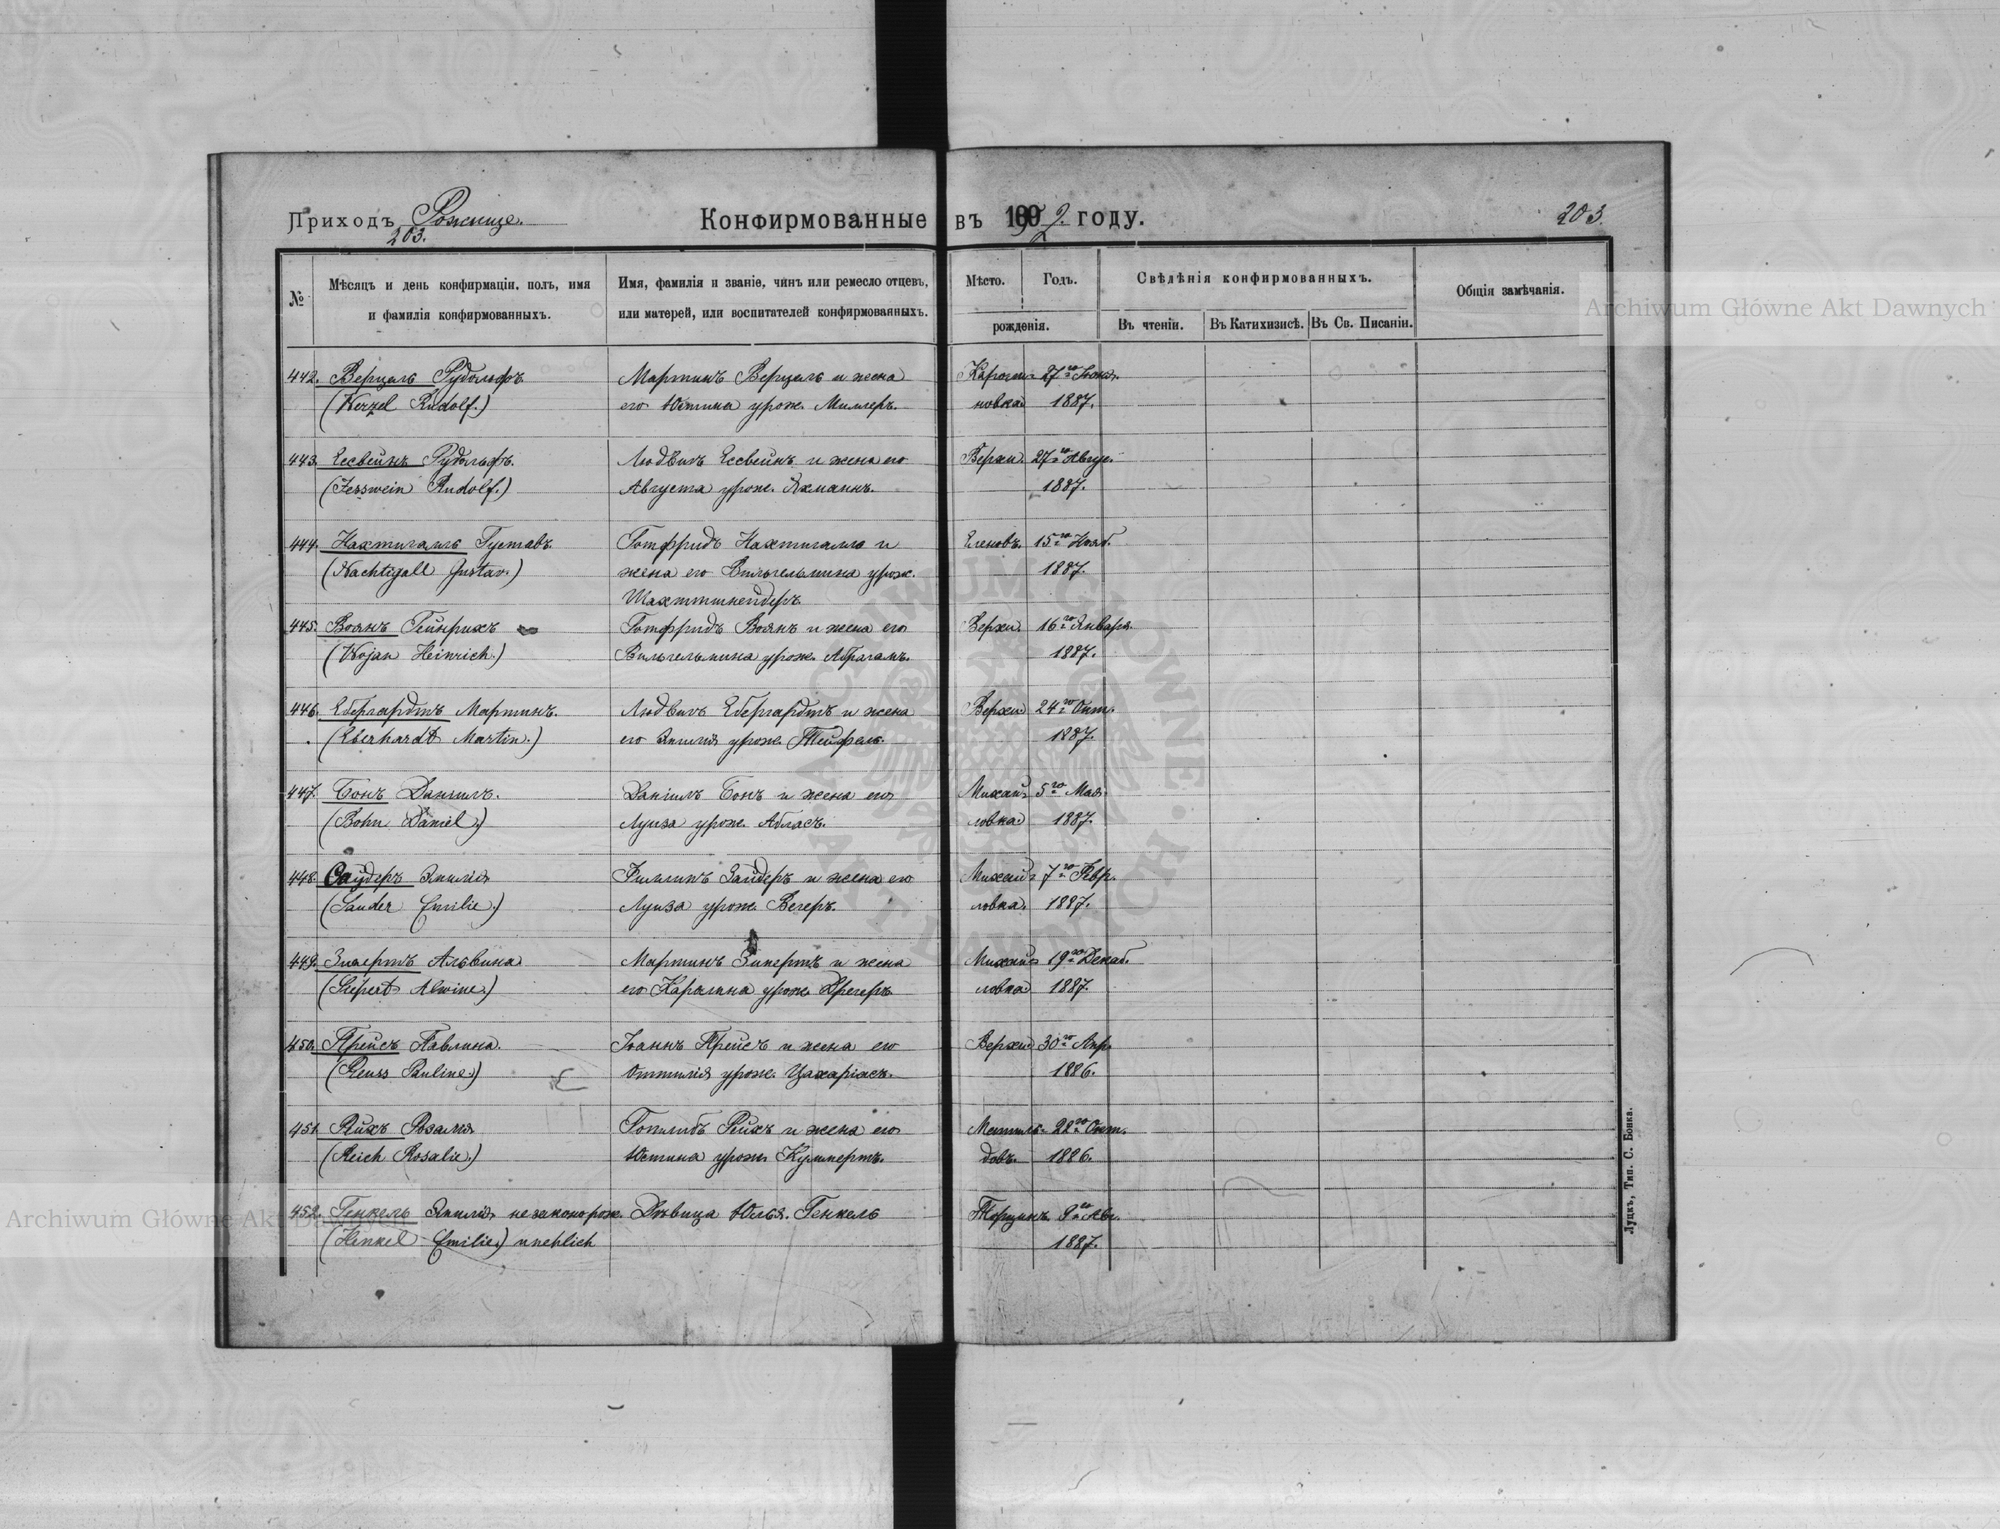 Приходъ Рожище.
203.
Конфирмованные въ 1902 году.
203.
№
Мѣсяцъ и день конфирмаціи, полъ, имя
и фамилія конфирмованныхъ.
Имя, фамилія и званіе, чинъ или ремесло отцевъ,
или матерей, или воспитателей конфирмованныхъ.
Мѣсто.
Годъ.
рожденія.
Свѣдѣнія конфирмованныхъ.
Въ чтеніи.
Въ Катихизисѣ.
Въ Св. Писаніи.
Общія замѣчанія.
442. Верцель Рудольфъ Мартинъ Верцель и жена 27го
(Werzel Rudolf.) его Юстина урож. Миллеръ. новка. 1887.
443. Ессвейнъ Рудольфъ. Людвигъ Ессвейнъ и жена его Верхи. 27го Авгус.
(Jesswein Rudolf.) Августа урож. Яхманъ. 1887.
444. Нахтигаль Густавъ. Готфридъ Нахтигаль и Еленовъ. 15го Нояб.
(Nachtigall Gustav.) жена его Вильгельмина урож. 1887.
Шахтшнейдеръ
445. Воянъ Гейнрихъ Готфридъ Воянъ и жена его Верхи. 16го Января.
(Wojan Heinrich.) Вильгельмина урож. Абрагамъ. 1887.
446. Ебергардтъ Мартинъ. Людвигъ Ебергардтъ и жена Верхи. 24го Окт.
(Eberhardt Martin.) его Эмилія урож. Тейфель. 1887.
447. Бонъ Даніилъ. Даніилъ Бонъ и жена его Михай- 5го Мая.
(Bohn Daniel.) Луиза урож. Абласъ. ловка. 1887.
448. Саудеръ Эмилія Филиппъ Заудеръ и жена его Михай- 7го Февр.
(Sauder Emilie.) Луиза урож. Вегеръ. ловка. 1887.
449. Зипертъ Альвина Мартинъ Зипертъ и жена Михай- 19го Декаб.
(Siepert Alwine.) его Каролина урож. Дрегеръ ловка. 1887.
450. Прейсъ Павлина. Іоаннъ Прейсъ и жена его Верхи. 30го Апр.
(Preuss Pauline.) Оттилія урож. Цахаріасъ. 1886.
451. Рейхъ Розалія Готлибъ Рейхъ и жена его Матиль- 22го Окт.
(Reich Rosalie.) Юстина урож. Куммертъ. довъ. 1886.
452. Генкель Эмилія незаконорож. Дѣвица Юлья Генкель Торчинъ. Авг.
(Henkel Emilie.) unehlich 1887.
Луцкъ, Тип. С. Бонка.
Archiwum Główne Akt Dawnych
Archiwum Główne Akt Dawnych
ARCHIWUM GŁÓWNE AKT DAWNYCH